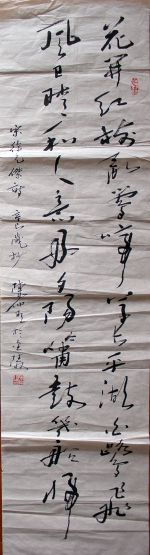 花開紅樹亂鶯啼草長平湖白鷺飛
風日晴和人意好夕陽簫鼓幾船歸
宋徐元傑詩 辛巳歲 於金陵